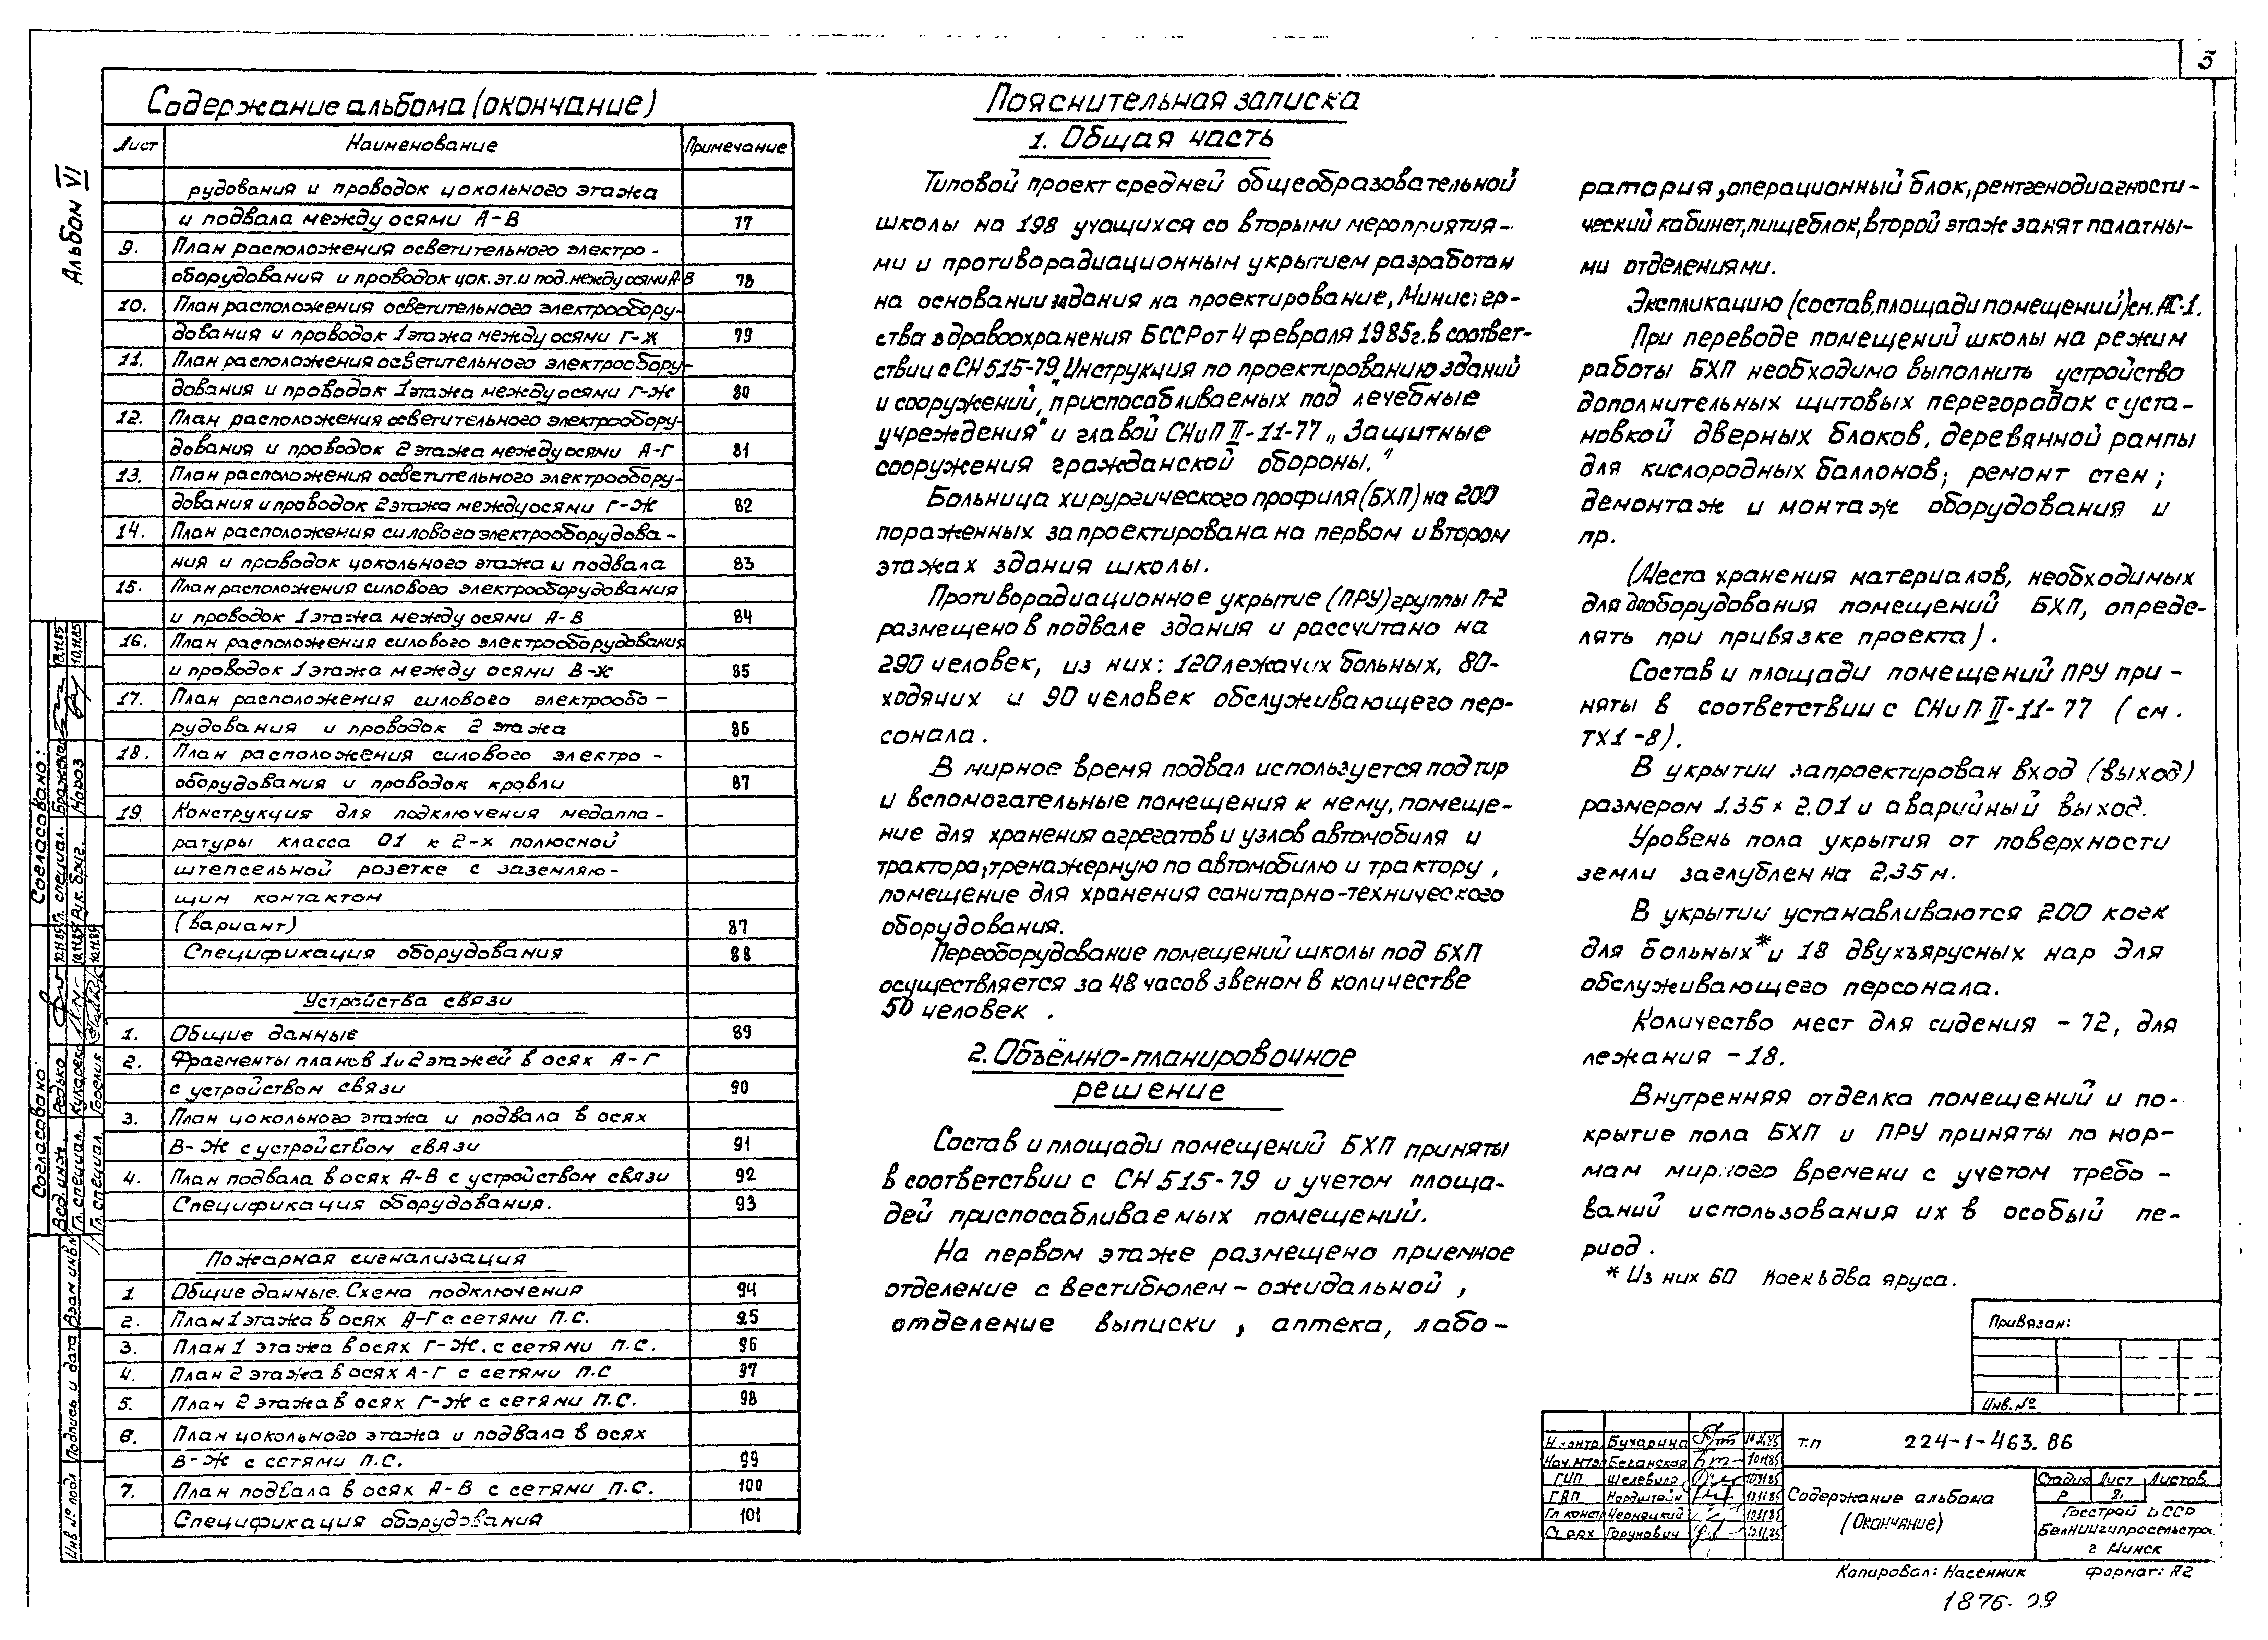 3
Альбом VI
Содержание альбома (окончание)
Лист Наименование Примечание
рудования и проводок цокольного этажа
и подвала между осями А-В 77
9. План расположения осветительного электро-
оборудования и проводок цок. эт. и под. между осями А-В 78
10. План расположения осветительного электрообору-
дования и проводок 1 этажа между осями Г-Ж 79
11. План расположения осветительного электрообору-
дования и проводок 1 этажа между осями Г-Ж 80
12. План расположения осветительного электрообору-
дования и проводок 2 этажа между осями А-Г 81
13. План расположения осветительного электрообору-
дования и проводок 2 этажа между осями Г-Ж 82
14. План расположения силового электрооборудова-
ния и проводок цокольного этажа и подвала 83
15. План расположения силового электрооборудования
и проводок 1 этажа между осями А-В 84
16. План расположения силового электрооборудования
и проводок 1 этажа между осями В-Ж 85
17. План расположения силового электрообо-
рудования и проводок 2 этажа 86
18. План расположения силового электро-
оборудования и проводок кровли 87
19. Конструкция для подключения медаппа-
ратуры класса 01 к 2-х полюсной
штепсельной розетке с заземляю-
щим контактом
(вариант) 87
Спецификация оборудования 88
Устройства связи
1. Общие данные 89
2. Фрагменты планов 1 и 2 этажей в осях А-Г
с устройством связи 90
3. План цокольного этажа и подвала в осях
В-Ж с устройством связи 91
4. План подвала в осях А-В с устройством связи 92
Спецификация оборудования. 93
Пожарная сигнализация
1 Общие данные. Схема подключения 94
2. План 1 этажа в осях А-Г с сетями П.С. 95
3. План 1 этажа в осях Г-Ж. с сетями П.С. 96
4. План 2 этажа в осях А-Г с сетями П.С 97
5. План 2 этажа в осях Г-Ж с сетями П.С. 98
6. План цокольного этажа и подвала в осях
В-Ж с сетями П.С. 99
7. План подвала в осях А-В с сетями П.С. 100
Спецификация оборудования 101
Пояснительная записка
1. Общая часть
Типовой проект средней общеобразовательной
школы на 198 учащихся со вторыми мероприятия-
ми и противорадиационным укрытием разработан
на основании задания на проектирование, Министер-
ства здравоохранения БССР от 4 февраля 1985г. в соответ-
ствии с СН 515-79 „Инструкция по проектированию зданий
и сооружений, приспосабливаемых под лечебные
учреждения" и главой СНиП II-11-77 „Защитные
сооружения гражданской обороны."
Больница хирургического профиля (БХП) на 200
пораженных запроектирована на первом и втором
этажах здания школы.
Противорадиационное укрытие (ПРУ) группы П-2
размещено в подвале здания и рассчитано на
290 человек, из них: 120 лежачих больных, 80-
ходячих и 90 человек обслуживающего пер-
сонала.
В мирное время подвал используется под тир
и вспомогательные помещения к нему, помеще-
ние для хранения агрегатов и узлов автомобиля и
трактора, тренажерную по автомобилю и трактору,
помещение для хранения санитарно-технического
оборудования.
Переоборудование помещений школы под БХП
осуществляется за 48 часов звеном в количестве
50 человек.
2. Объёмно-планировочное
решение
Состав и площади помещений БХП приняты
в соответствии с СН 515-79 и учетом площа-
дей приспосабливаемых помещений.
На первом этаже размещено приемное
отделение с вестибюлем-ожидальной,
отделение выписки, аптека, лабо-
ратория, операционный блок, рентгенодиагности-
ческий кабинет, пищеблок, второй этаж занят палатны-
ми отделениями.
Экспликацию (состав, площади помещений) см. АС-1.
При переводе помещений школы на режим
работы БХП необходимо выполнить устройство
дополнительных щитовых перегородок с уста-
новкой дверных блоков, деревянной рампы
для кислородных баллонов; ремонт стен;
демонтаж и монтаж оборудования и
пр.
(Места хранения материалов, необходимых
для дооборудования помещений БХП, опреде-
лять при привязке проекта).
Состав и площади помещений ПРУ при-
няты в соответствии с СНиП II-11-77 (см.
ТХ1-8).
В укрытии запроектирован вход (выход)
размером 1.35 × 2.01 и аварийный выход.
Уровень пола укрытия от поверхности
земли заглублен на 2,35 м.
В укрытии устанавливаются 200 коек
для больных* и 18 двухъярусных нар для
обслуживающего персонала.
Количество мест для сидения - 72, для
лежания - 18.
Внутренняя отделка помещений и по-
крытие пола БХП и ПРУ приняты по нор-
мам мирного времени с учетом требо-
ваний использования их в особый пе-
риод.
* Из них 60 коек в два яруса.
Привязан:
Инв. №
Н.контр Бухарина 10.11.85
Нач. Беганская 10.11.85
ГИП 10.11.85
ГАП Нордштейн 10.11.85
Гл констр Чернецкий 10.11.85
Ст арх Горунович 10.11.85
Т.П 224-1-463.86
Содержание альбома
(Окончание)
Стадия Лист Листов
Р 2.
Госстрой БССР
БелНИИгипросельстрой
г Минск
Копировал: Насенник Формат: А2
1876.09
Согласовано:
Гл. специал. Бражена 10.11.85
Рук. бриг. Мороз 10.11.85
Согласовано:
Вед. инж. Редько 10.11.85
Гл. специал. 10.11.85
Гл. специал. Горелик 10.11.85
Взам инв №
Подпись и дата
Инв № подл